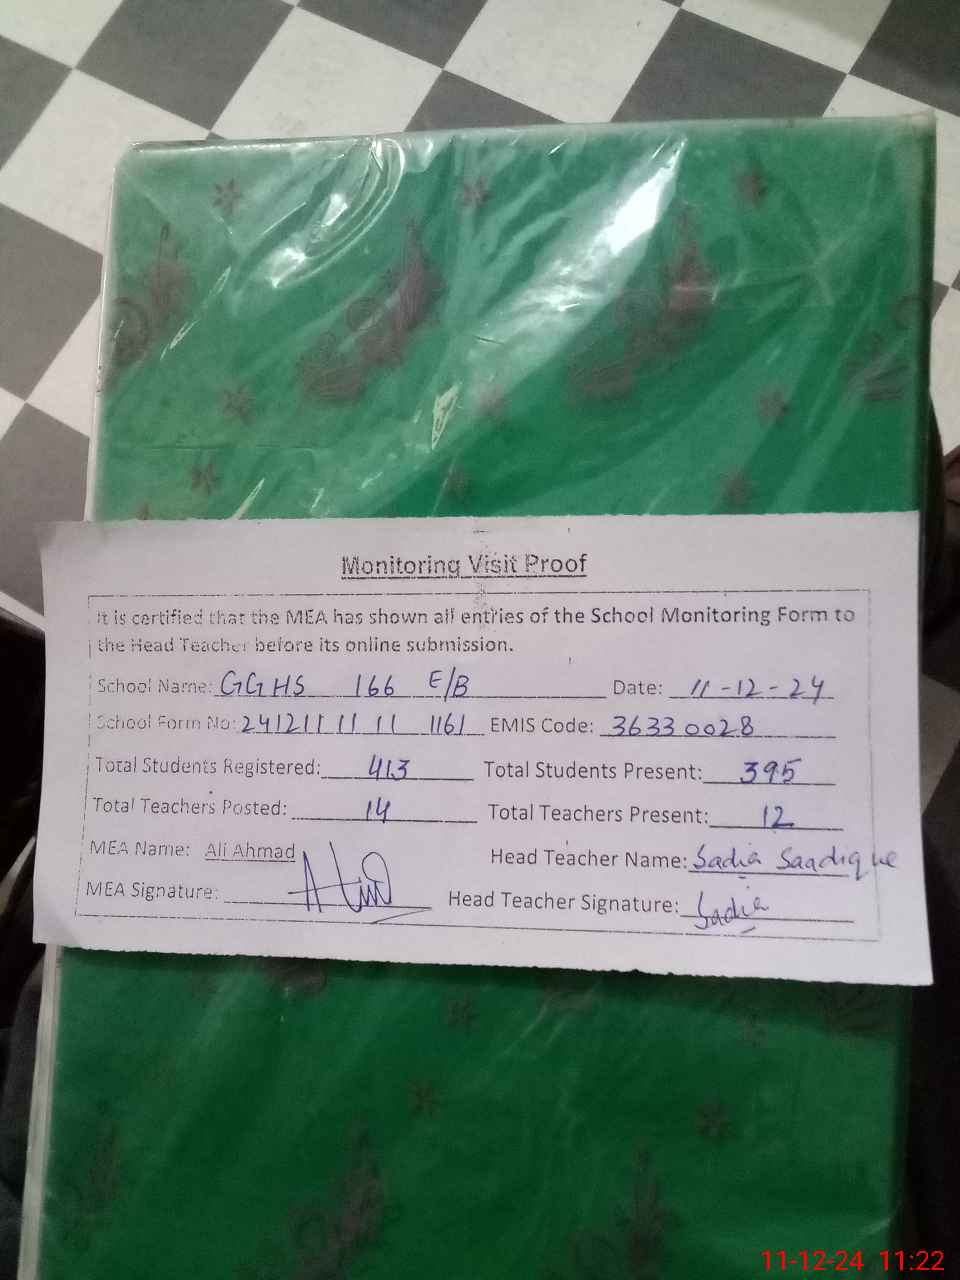 Monitoring Visit Proof
It is certified that the MEA has shown all entries of the School Monitoring Form to
the Head Teacher before its online submission.
School Name: GGHS 166 E/B Date: 11-12-24
School Form No: 241211 11 11 1161 EMIS Code: 36330028
Total Students Registered: 413 Total Students Present: 395
Total Teachers Posted: 14 Total Teachers Present: 12
MEA Name: Ali Ahmad Head Teacher Name: Sadia Saadique
MEA Signature: Head Teacher Signature: Sadia
11-12-24 11:22